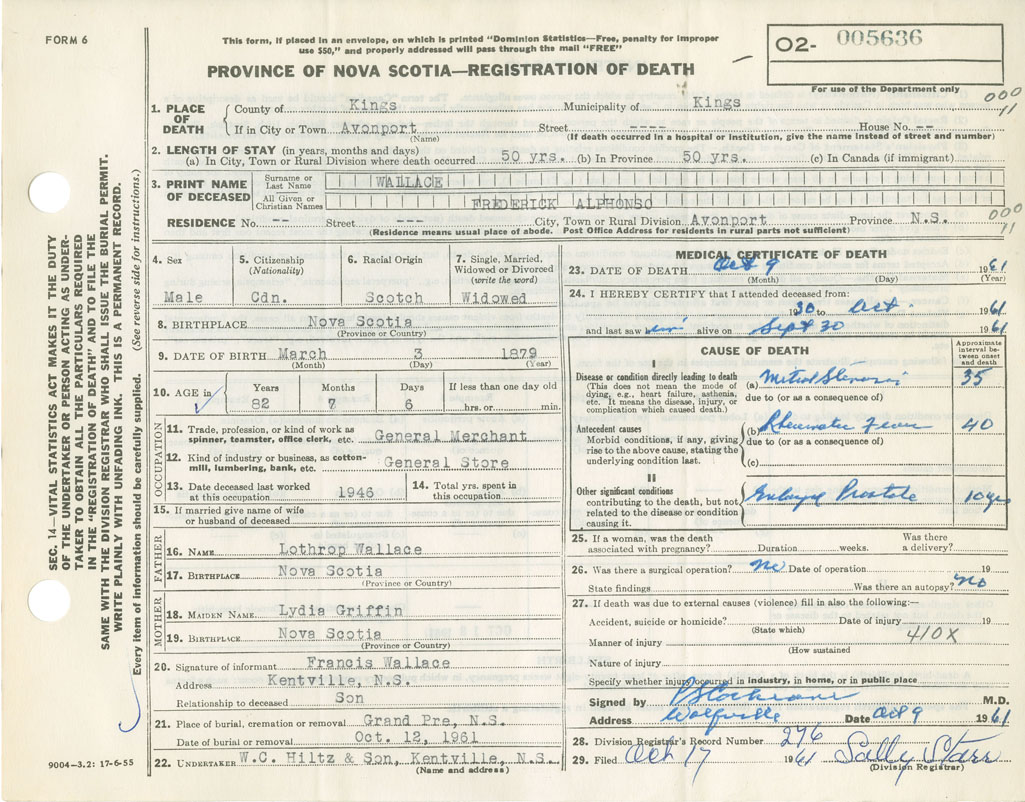 FORM 6
This form, if placed in an envelope, on which is printed "Dominion Statistics—Free, penalty for improper
use $50," and properly addressed will pass through the mail "FREE"
O2- 005636
For use of the Department only
PROVINCE OF NOVA SCOTIA—REGISTRATION OF DEATH
SEC. 14—VITAL STATISTICS ACT MAKES IT THE DUTY
OF THE UNDERTAKER OR PERSON ACTING AS UNDER-
TAKER TO OBTAIN ALL THE PARTICULARS REQUIRED
IN THE "REGISTRATION OF DEATH" AND TO FILE THE
SAME WITH THE DIVISION REGISTRAR WHO SHALL ISSUE THE BURIAL PERMIT.
WRITE PLAINLY WITH UNFADING INK. THIS IS A PERMANENT RECORD.
Every item of information should be carefully supplied. (See reverse side for instructions.)
1. PLACE OF DEATH
County of Kings Municipality of Kings
000
11
If in City or Town Avonport Street ---- House No. --
(Name) (If death occurred in a hospital or institution, give the name instead of street and number)
2. LENGTH OF STAY (in years, months and days)
(a) In City, Town or Rural Division where death occurred 50 yrs. (b) In Province 50 yrs. (c) In Canada (if immigrant)
3. PRINT NAME OF DECEASED
Surname or Last Name WALLACE
All Given or Christian Names FREDERICK ALPHONSO
RESIDENCE No. -- Street --- City, Town or Rural Division Avonport Province N.S.
000
11
(Residence means usual place of abode. Post Office Address for residents in rural parts not sufficient)
4. Sex
Male
5. Citizenship
(Nationality)
Cdn.
6. Racial Origin
Scotch
7. Single, Married,
Widowed or Divorced
(write the word)
Widowed
8. BIRTHPLACE Nova Scotia
(Province or Country)
9. DATE OF BIRTH March 3 1879
(Month) (Day) (Year)
10. AGE in
Years Months Days If less than one day old
82 7 6 hrs. or min.
OCCUPATION
11. Trade, profession, or kind of work as
spinner, teamster, office clerk, etc. General Merchant
12. Kind of industry or business, as cotton-
mill, lumbering, bank, etc. General Store
13. Date deceased last worked
at this occupation 1946
14. Total yrs. spent in
this occupation
15. If married give name of wife
or husband of deceased
FATHER
16. NAME Lothrop Wallace
17. BIRTHPLACE Nova Scotia
(Province or Country)
MOTHER
18. MAIDEN NAME Lydia Griffin
19. BIRTHPLACE Nova Scotia
(Province or Country)
20. Signature of informant Francis Wallace
Address Kentville, N.S.
Relationship to deceased Son
21. Place of burial, cremation or removal Grand Pre, N.S.
Date of burial or removal Oct. 12, 1961
22. UNDERTAKER W.C. Hiltz & Son, Kentville, N.S.
(Name and address)
9004—3.2: 17-6-55
MEDICAL CERTIFICATE OF DEATH
23. DATE OF DEATH Oct 9 1961
(Month) (Day) (Year)
24. I HEREBY CERTIFY that I attended deceased from:
1930 to Oct. 1961
and last saw him alive on Sept 30 1961
CAUSE OF DEATH
Approximate
interval be-
tween onset
and death
I
Disease or condition directly leading to death
(This does not mean the mode of
dying, e.g., heart failure, asthenia,
etc. It means the disease, injury, or
complication which caused death.)
(a) Mitral Stenosis 35
due to (or as a consequence of)
Antecedent causes
Morbid conditions, if any, giving
rise to the above cause, stating the
underlying condition last.
(b) Rheumatic Fever 40
due to (or as a consequence of)
(c)
II
Other significant conditions
contributing to the death, but not
related to the disease or condition
causing it.
Enlarged Prostate 10 yrs
25. If a woman, was the death
associated with pregnancy? Duration weeks. Was there
a delivery?
26. Was there a surgical operation? No Date of operation 19
State findings Was there an autopsy? No
27. If death was due to external causes (violence) fill in also the following:—
Accident, suicide or homicide? Date of injury 19
(State which)
410X
Manner of injury
(How sustained
Nature of injury
Specify whether injury occurred in industry, in home, or in public place
Signed by Cochrane M.D.
Address Wolfville Date Oct 9 1961
28. Division Registrar's Record Number 276
29. Filed Oct 17 1961 Sally Starr
(Division Registrar)